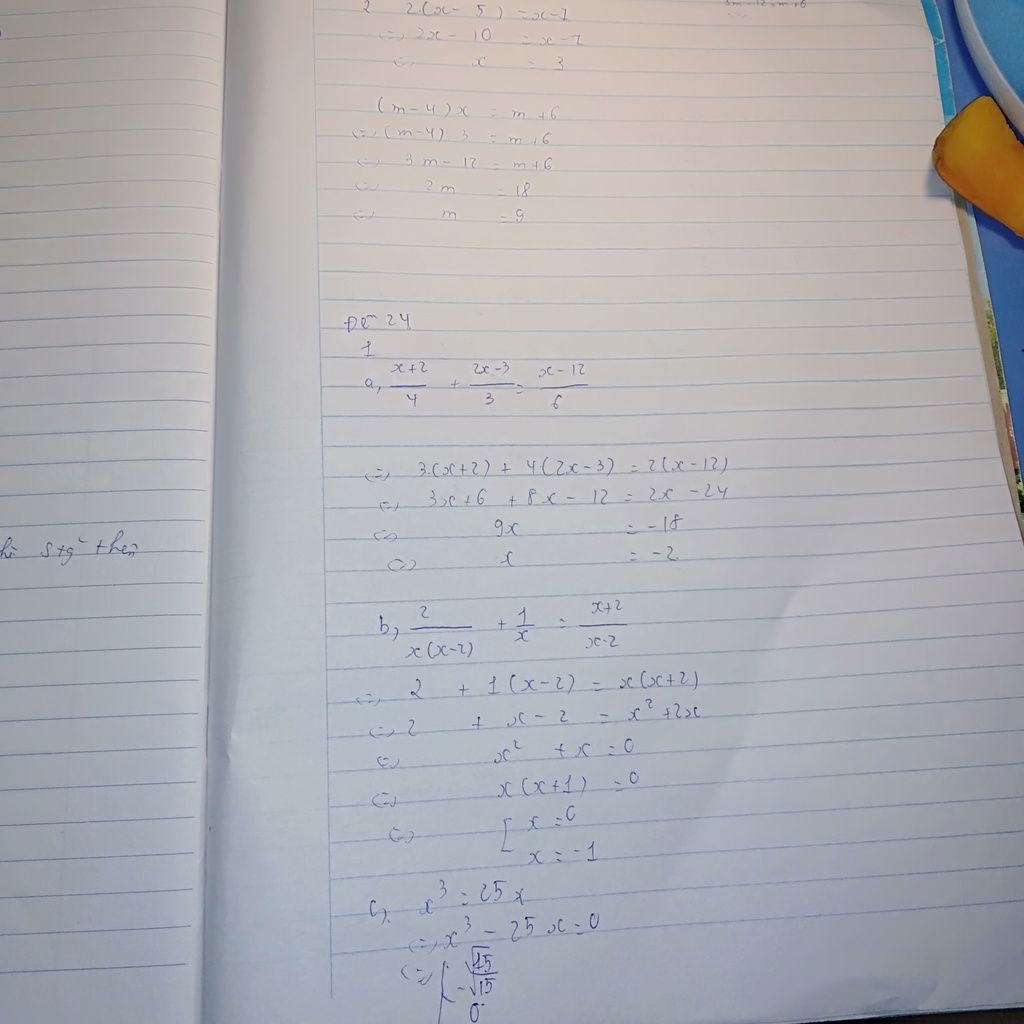 2 2.(x-5) = x-7
<=> 2x - 10 = x - 7
<=> x = 3
(m-4)x = m+6
<=> (m-4) 3 = m+6
<=> 3m - 12 = m+6
<=> 2m = 18
<=> m = 9
Đề 24
1
a, x+2/4 + 2x-3/3 = x-12/6
<=> 3.(x+2) + 4(2x-3) = 2(x-12)
<=> 3x+6 + 8x - 12 = 2x - 24
<=> 9x = -18
<=> x = -2
b, 2/x(x-2) + 1/x = x+2/x-2
<=> 2 + 1(x-2) = x(x+2)
<=> 2 + x - 2 = x² + 2x
<=> x² + x = 0
<=> x(x+1) = 0
<=> [ x = 0
x = -1
c, x³ = 25x
<=> x³ - 25x = 0
<=> [
-√15
0